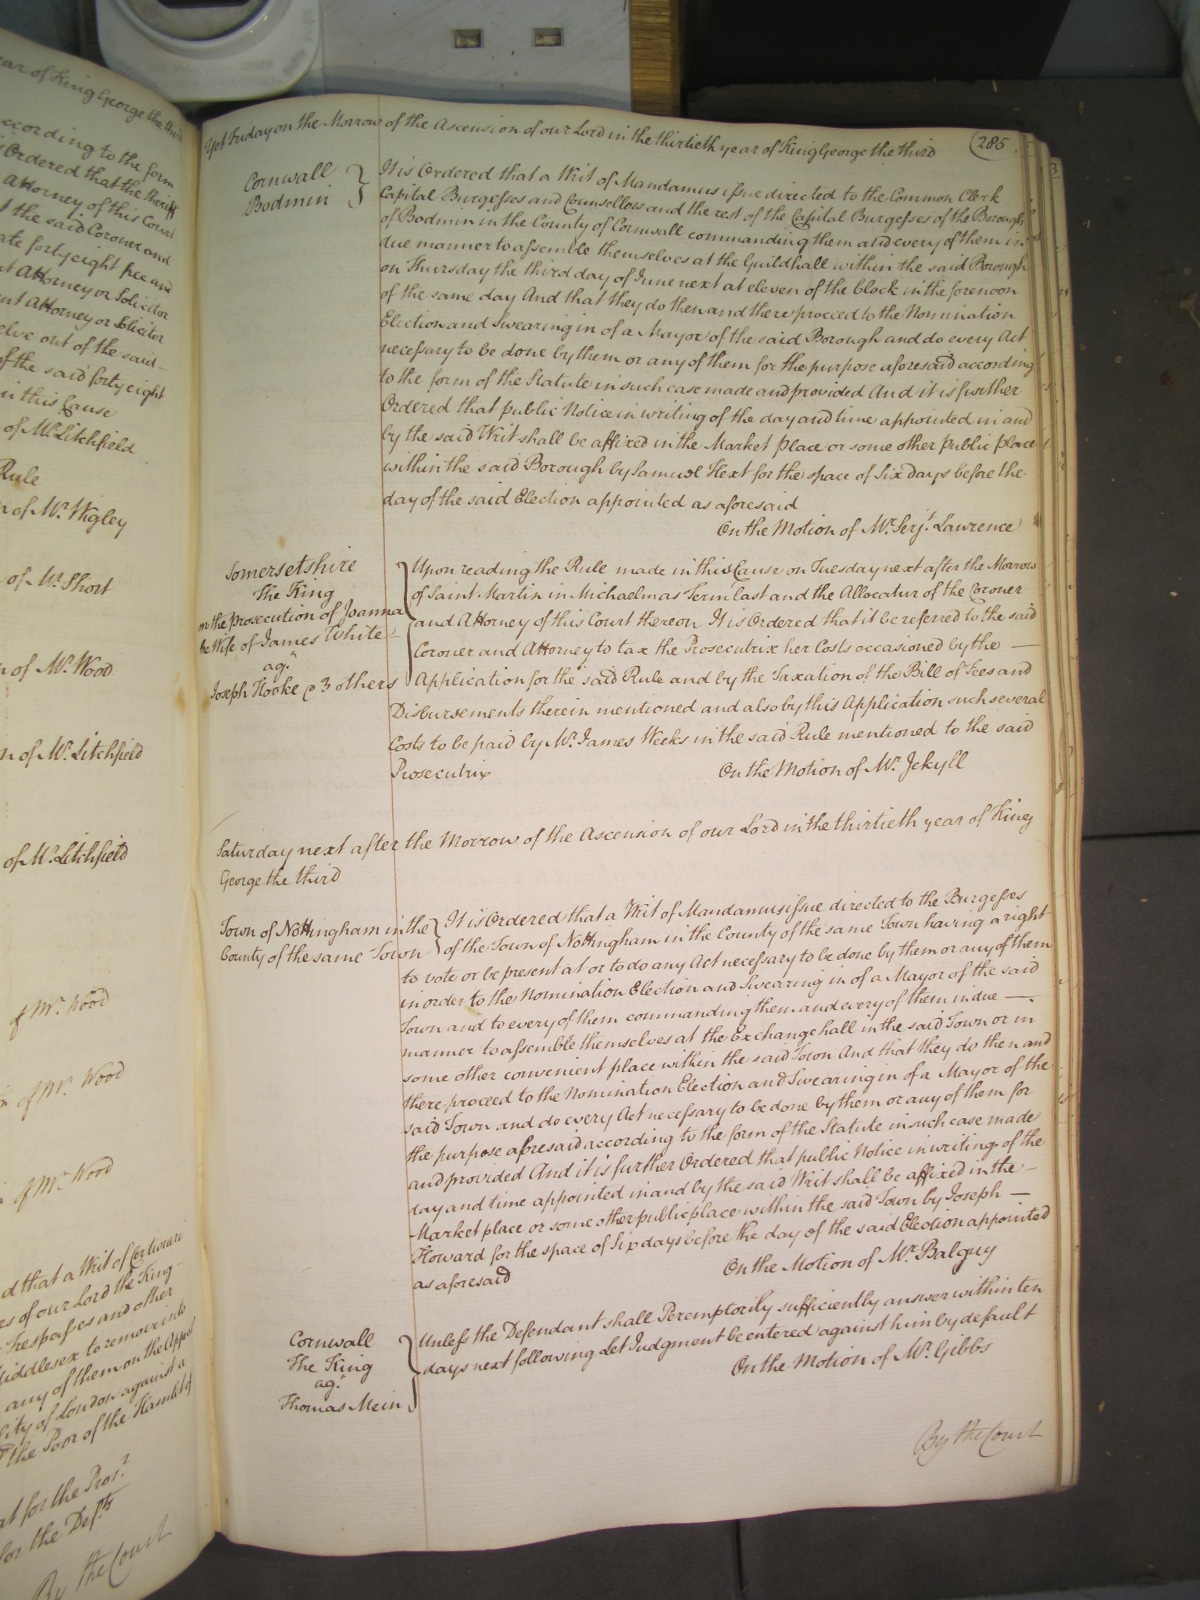 ear of King George the thi
ccording to the form
Ordered that the Sheriff
Attorney of this Court
t the said Coroner and
ate forty eight free and
Attorney or Solicitor
ent Attorney or Solicitor
elve out of the said
of the said forty eight
in this Cause
of Mr. Litchfield
Rule
n of Mr. Wigley
of Mr. Short
n of Mr. Wood
n of Mr. Litchfield
of Mr. Litchfield
of Mr. Wood
of Mr. Wood
of Mr. Wood
d that a Writ of Certiorari
es of our Lord the King
Trespasses and other
Middlesex to remove into
any of them on the Appeal
City of London against a
the Poor of the Hamlet of
at for the Pros.r
for the Def.ts
By the Court
Yet Friday on the Morrow of the Ascension of our Lord in the thirtieth year of King George the third
285
Cornwall
Bodmin
It is Ordered that a Writ of Mandamus issue directed to the Common Clerk
Capital Burgesses and Counsellors and the rest of the Capital Burgesses of the Borough
of Bodmin in the County of Cornwall commanding them and every of them in
due manner to assemble themselves at the Guildhall within the said Borough
on Thursday the third day of June next at eleven of the Clock in the forenoon
of the same day And that they do then and there proceed to the Nomination
Election and Swearing in of a Mayor of the said Borough and do every Act
necessary to be done by them or any of them for the purpose aforesaid according
to the form of the Statute in such case made and provided And it is further
Ordered that public Notice in writing of the day and time appointed in and
by the said Writ shall be affixed in the Market place or some other public place
within the said Borough by Samuel Hext for the space of Six days before the
day of the said Election appointed as aforesaid
On the Motion of Mr. Serj.t Lawrence
Somersetshire
The King
on the prosecution of Joanna
the Wife of James White
ag.t
Joseph Hooke & 3 others
Upon reading the Rule made in this Cause on Tuesday next after the Morrow
of Saint Martin in Michaelmas Term last and the Allocatur of the Coroner
and Attorney of this Court thereon It is Ordered that it be referred to the said
Coroner and Attorney to tax the Prosecutrix her Costs occasioned by the —
Application for the said Rule and by the Taxation of the Bill of Fees and
Disbursements therein mentioned and also by this Application such several
Costs to be paid by Mr. James Weeks in the said Rule mentioned to the said
Prosecutrix
On the Motion of Mr. Jekyll
Saturday next after the Morrow of the Ascension of our Lord in the thirtieth year of King
George the third
Town of Nottingham in the
County of the same Town
It is Ordered that a Writ of Mandamus issue directed to the Burgesses
of the Town of Nottingham in the County of the same Town having a right
to vote or be present at or to do any Act necessary to be done by them or any of them
in order to the Nomination Election and Swearing in of a Mayor of the said
Town and to every of them commanding them and every of them in due —
manner to assemble themselves at the Exchange hall in the said Town or in
some other convenient place within the said Town And that they do then and
there proceed to the Nomination Election and Swearing in of a Mayor of the
said Town and do every Act necessary to be done by them or any of them for
the purpose aforesaid according to the form of the Statute in such case made
and provided And it is further Ordered that public Notice in writing of the
day and time appointed in and by the said Writ shall be affixed in the —
Market place or some other public place within the said Town by Joseph —
Howard for the space of Six days before the day of the said Election appointed
as aforesaid
On the Motion of Mr. Balguy
Cornwall
The King
ag.t
Thomas Mein
Unless the Defendant shall Peremptorily sufficiently answer within ten
days next following Let Judgment be entered against him by default
On the Motion of Mr. Gibbs
By the Court